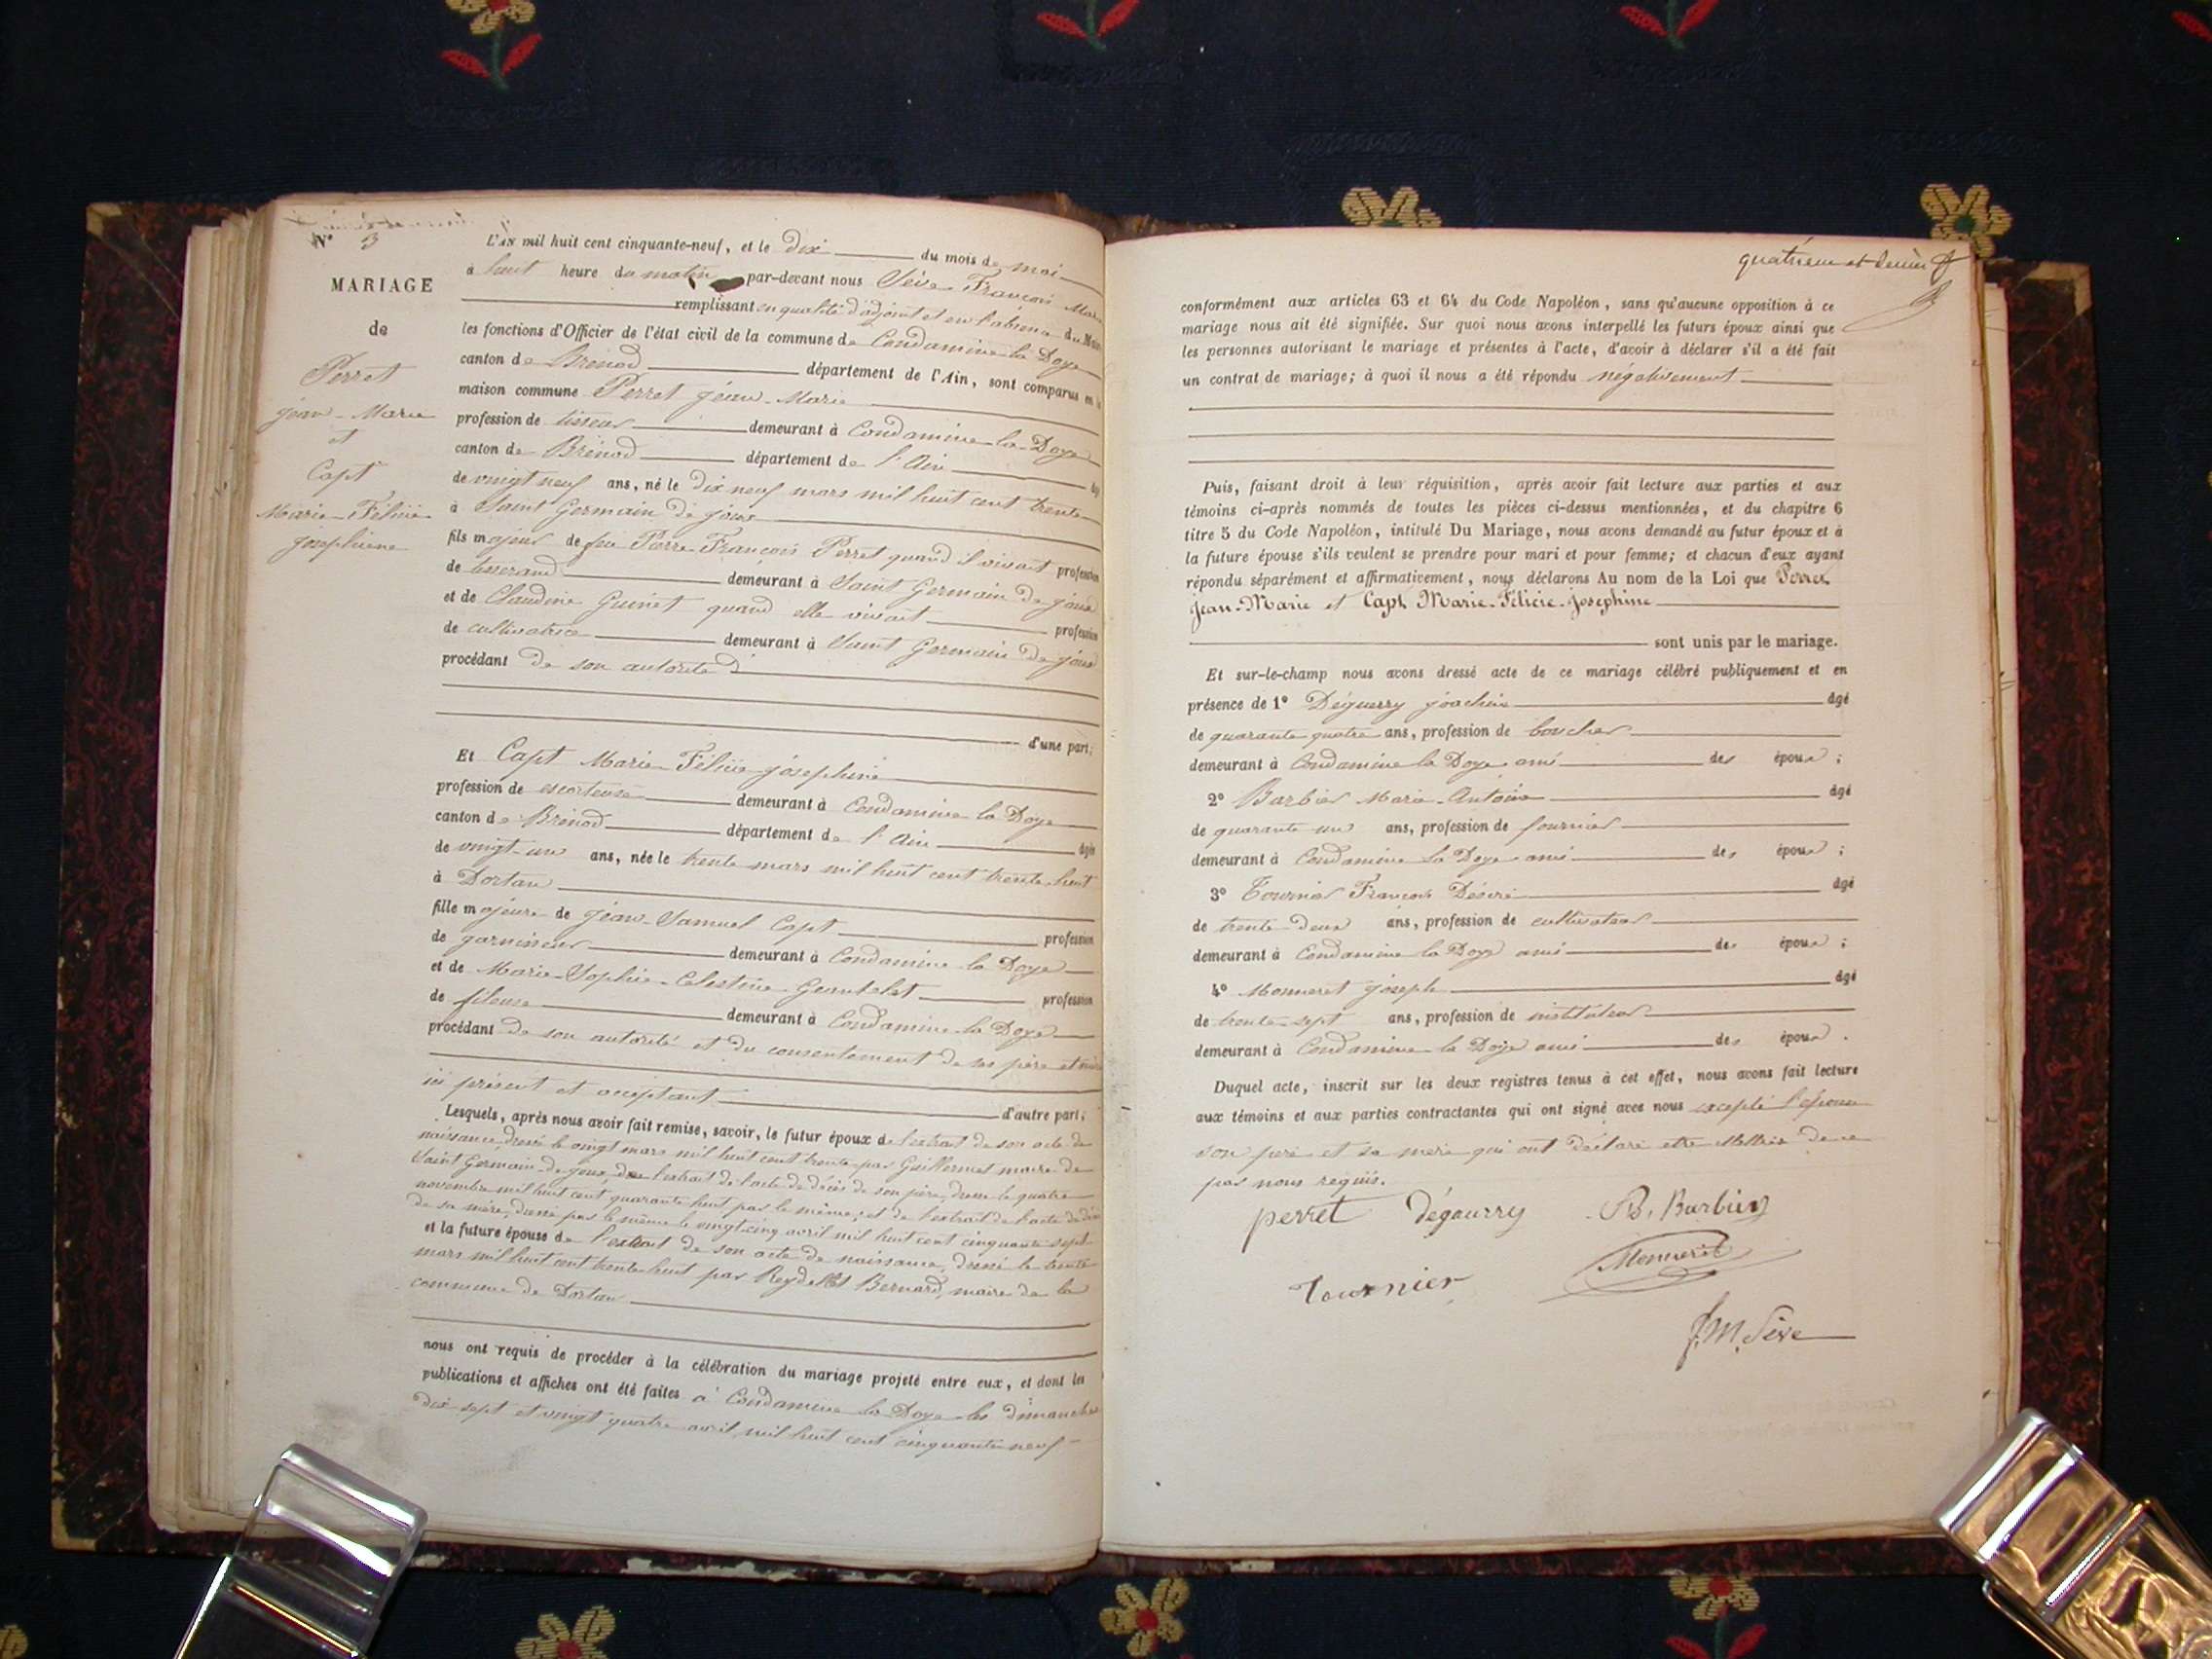 N° 3
MARIAGE
de
Perret
jean-Marie
et
Capt
Marie-Félicie
josephine
L'AN mil huit cent cinquante-neuf, et le dix du mois de mai
à huit heure du matin par-devant nous Sève François Marie
remplissant en qualité d'adjoint et en l'absence du Maire
les fonctions d'Officier de l'état civil de la commune de Condamine la Doye
canton de Brénod département de l'Ain, sont comparus en la
maison commune Perret jean-Marie
profession de tisseur demeurant à Condamine-la-Doye
canton de Brénod département de l'Ain âgé
de vingt neuf ans, né le dix neuf mars mil huit cent trente
à Saint Germain de joux
fils majeur de feu Pierre François Perret quand il vivait profession
de tisserand demeurant à Saint Germain de joux
et de Claudine Guinet quand elle vivait profession
de cultivatrice demeurant à Saint Germain de joux
procédant de son autorité
d'une part;
Et Capt Marie Félicie josephine
profession de demeurant à Condamine la Doye
canton de Brénod département de l'Ain âgée
de vingt-un ans, née le trente mars mil huit cent trente-huit
à Dortan
fille majeure de jean-Samuel Capt profession
de garnisseur demeurant à Condamine-la Doye
et de Marie-Sophie-Célestine profession
de fileuse demeurant à Condamine-la Doye
procédant de son autorité et du consentement de ses père et mère
ici présent et acceptant d'autre part;
Lesquels, après nous avoir fait remise, savoir, le futur époux de l'extrait de son acte de
naissance, dressé le vingt mars mil huit cent trente par Guillermet maire de
Saint Germain-de-joux, de l'extrait de l'acte de décès de son père, dressé le quatre
novembre mil huit cent quarante huit par le même; et de l'extrait de l'acte de décès
de sa mère, dressé par le même le vingt-cinq avril mil huit cent cinquante sept
et la future épouse de l'extrait de son acte de naissance, dressé le trente
mars mil huit cent trente-huit par Reydellet Bernard, maire de la
commune de Dortan
nous ont requis de procéder à la célébration du mariage projeté entre eux, et dont les
publications et affiches ont été faites à Condamine la Doye les dimanches
dix-sept et vingt quatre avril mil huit cent cinquante-neuf
quatrième et dernier
conformément aux articles 63 et 64 du Code Napoléon, sans qu'aucune opposition à ce
mariage nous ait été signifiée. Sur quoi nous avons interpellé les futurs époux ainsi que
les personnes autorisant le mariage et présentes à l'acte, d'avoir à déclarer s'il a été fait
un contrat de mariage; à quoi il nous a été répondu négativement
Puis, faisant droit à leur réquisition, après avoir fait lecture aux parties et aux
témoins ci-après nommés de toutes les pièces ci-dessus mentionnées, et du chapitre 6
titre 5 du Code Napoléon, intitulé Du Mariage, nous avons demandé au futur époux et à
la future épouse s'ils veulent se prendre pour mari et pour femme; et chacun d'eux ayant
répondu séparément et affirmativement, nous déclarons Au nom de la Loi que Perret
Jean-Marie et Capt Marie-Félicie-Josephine
sont unis par le mariage.
Et sur-le-champ nous avons dressé acte de ce mariage célébré publiquement et en
présence de 1° Déguerry joachim âgé
de quarante quatre ans, profession de boucher
demeurant à Condamine la Doye ami des époux;
2° Barbier Marie-Antoine âgé
de quarante un ans, profession de fournier
demeurant à Condamine la Doye ami des époux;
3° Tournier François Désiré âgé
de trente-deux ans, profession de cultivateur
demeurant à Condamine la Doye ami des époux;
4° Monneret joseph âgé
de trente-sept ans, profession de instituteur
demeurant à Condamine la Doye ami des époux.
Duquel acte, inscrit sur les deux registres tenus à cet effet, nous avons fait lecture
aux témoins et aux parties contractantes qui ont signé avec nous excepté l'épouse
son père et sa mère qui ont déclaré être de ce
par nous requis.
perret dégourry B. Barbier
Tournier Monneret
f. M. Sève